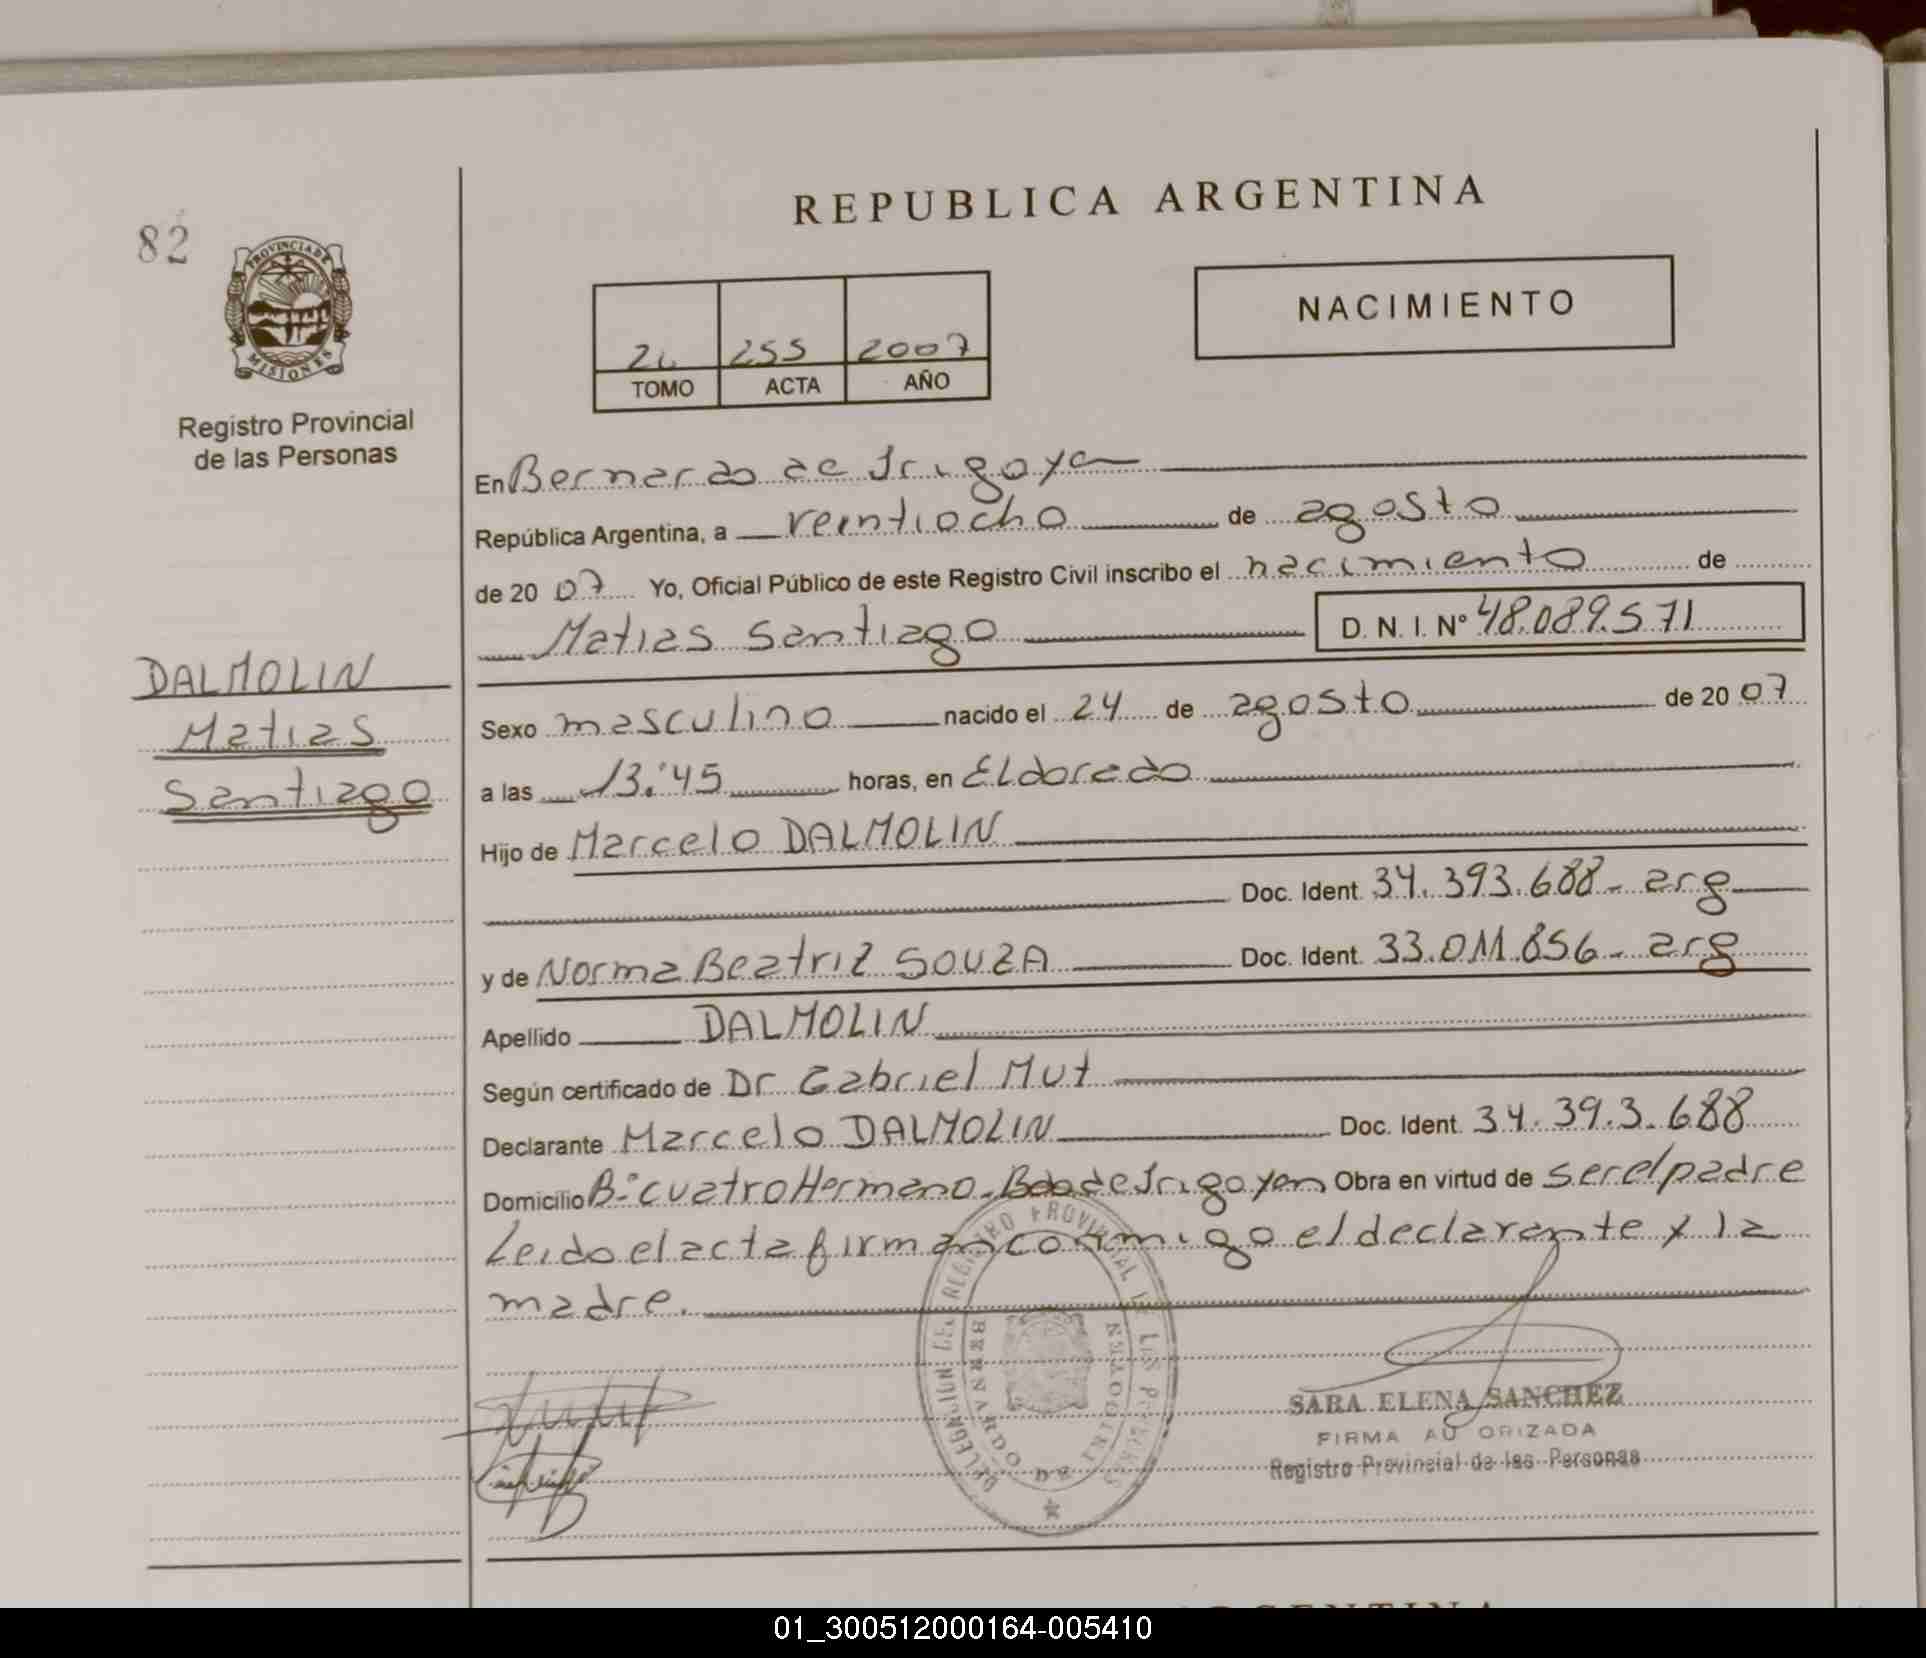 REPUBLICA ARGENTINA
82
PROVINCIA DE
MISIONES
Registro Provincial
de las Personas
NACIMIENTO
255 2007
TOMO ACTA AÑO
En Bernardo de Irigoyen
República Argentina, a veintiocho de agosto
de 20 07 Yo, Oficial Público de este Registro Civil inscribo el nacimiento de
Matias Santiago D. N. I. Nº 48.089.571
DALMOLIN
Matias
Santiago
Sexo masculino nacido el 24 de agosto de 20 07
a las 13:45 horas, en Eldorado
Hijo de Marcelo DALMOLIN
Doc. Ident. 34.393.688 - arg
y de Norma Beatriz SOUZA Doc. Ident. 33.011.856 - arg
Apellido DALMOLIN
Según certificado de Dr Gabriel Mut
Declarante Marcelo DALMOLIN Doc. Ident. 34.393.688
Domicilio Bº cuatro Hermano. Bdo de Irigoyen Obra en virtud de ser el padre
Leido el acta firman conmigo el declarante y la
madre.
DELEGACION DEL REGISTRO PROVINCIAL DE LAS PERSONAS
BERNARDO DE IRIGOYEN
SARA ELENA SANCHEZ
FIRMA AUTORIZADA
Registro Provincial de las Personas
01_300512000164-005410